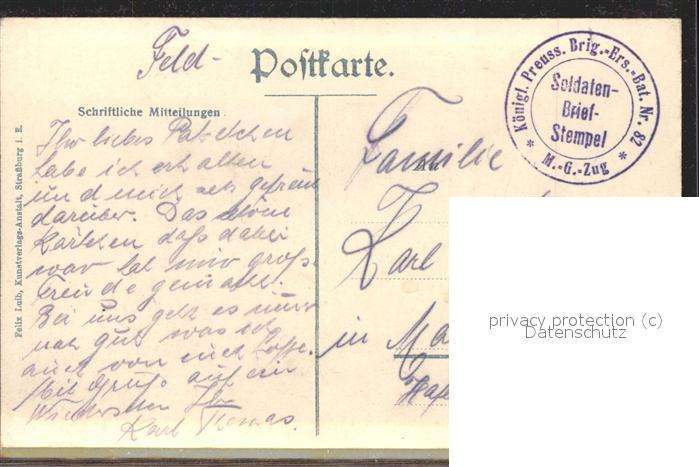 Feld-
Postkarte.
Königl. Preuss. Brig.-Ers.-Bat. Nr. 82
Soldaten-
Brief-
Stempel
* M.-G.-Zug *
Schriftliche Mitteilungen.
Felix Luib, Kunstverlags-Anstalt, Straßburg i. E.
Ihr liebes Paketchen
habe ich erhalten
und mich sehr gefreut
darüber. Das schöne
Kärtchen daß dabei
war hat mir groß
Freude gemacht.
Bei uns geht es immer
noch gut was ich
auch von euch hoffe.
Mit Gruß auf ein
Wiedersehen Ihr
Karl Thomas.
Familie
Karl
in Ma
privacy protection (c)
Datenschutz